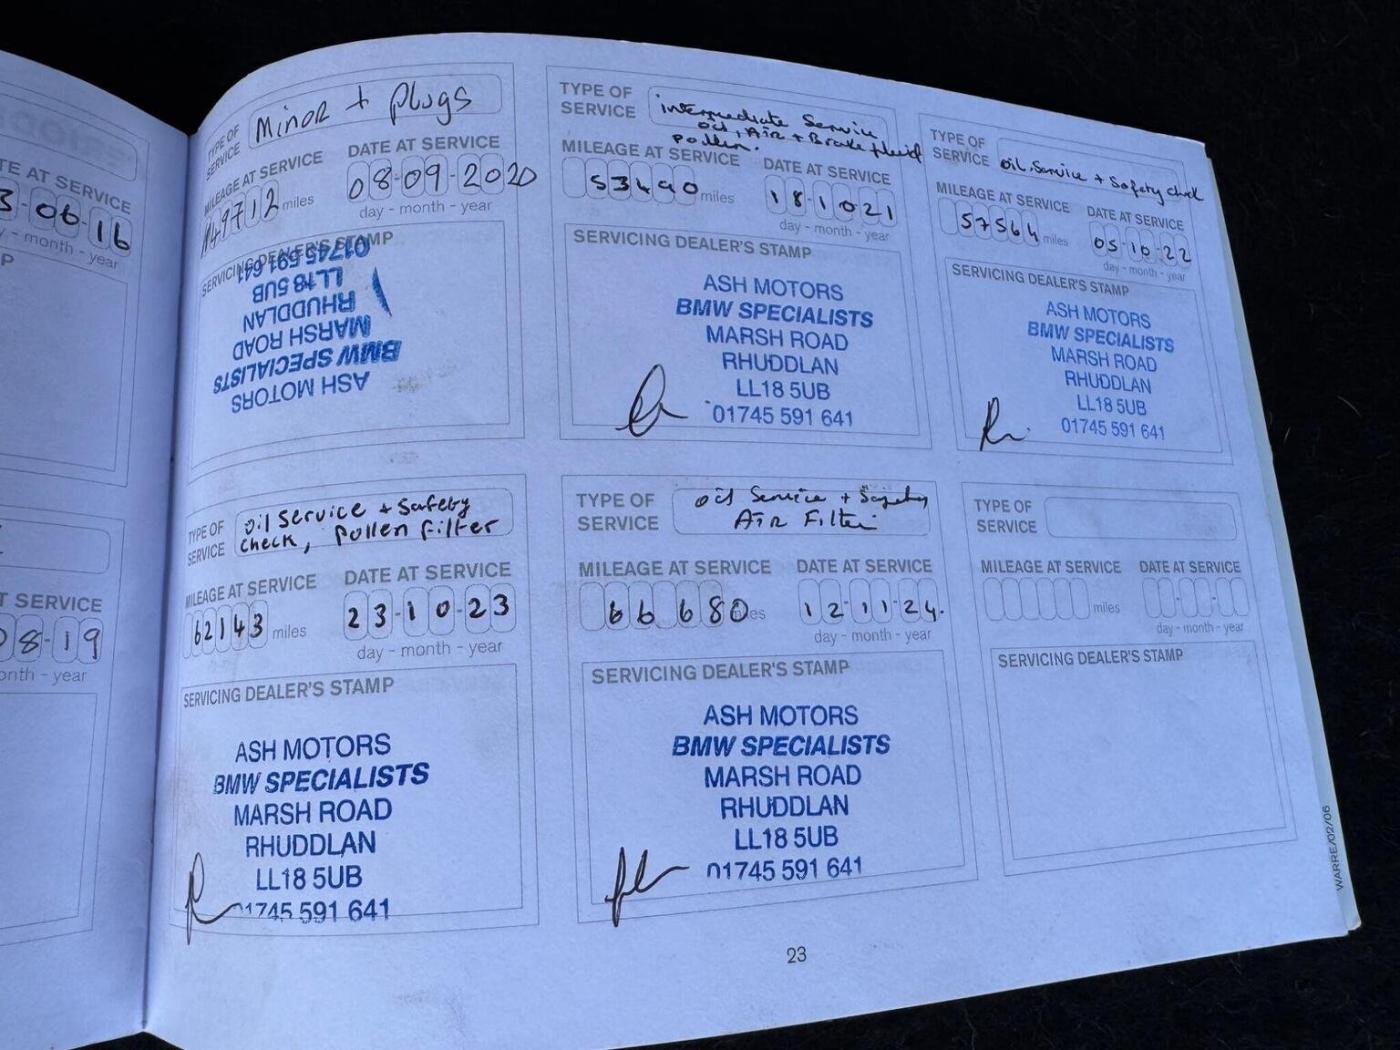 TE AT SERVICE
3-06-16
- month - year
P
T SERVICE
08-19
onth - year
TYPE OF
SERVICE
Minor + plugs
MILEAGE AT SERVICE
49712 miles
DATE AT SERVICE
08-09-2020
day - month - year
SERVICING DEALER'S STAMP
ASH MOTORS
BMW SPECIALISTS
MARSH ROAD
RHUDDLAN
LL18 5UB
01745 591 641
TYPE OF
SERVICE
intermediate Service
oil, Air + Brake fluid
pollen.
MILEAGE AT SERVICE
53490 miles
DATE AT SERVICE
18-10-21
day - month - year
SERVICING DEALER'S STAMP
ASH MOTORS
BMW SPECIALISTS
MARSH ROAD
RHUDDLAN
LL18 5UB
01745 591 641
TYPE OF
SERVICE
oil Service + Safety check
MILEAGE AT SERVICE
57564 miles
DATE AT SERVICE
05-10-22
day - month - year
SERVICING DEALER'S STAMP
ASH MOTORS
BMW SPECIALISTS
MARSH ROAD
RHUDDLAN
LL18 5UB
01745 591 641
TYPE OF
SERVICE
oil service + safety
check, pollen filter
MILEAGE AT SERVICE
62143 miles
DATE AT SERVICE
23-10-23
day - month - year
SERVICING DEALER'S STAMP
ASH MOTORS
BMW SPECIALISTS
MARSH ROAD
RHUDDLAN
LL18 5UB
01745 591 641
TYPE OF
SERVICE
oil Service + Safety
Air Filter
MILEAGE AT SERVICE
66680 miles
DATE AT SERVICE
12-11-24.
day - month - year
SERVICING DEALER'S STAMP
ASH MOTORS
BMW SPECIALISTS
MARSH ROAD
RHUDDLAN
LL18 5UB
01745 591 641
TYPE OF
SERVICE
MILEAGE AT SERVICE
miles
DATE AT SERVICE
day - month - year
SERVICING DEALER'S STAMP
WARRE/02/06
23